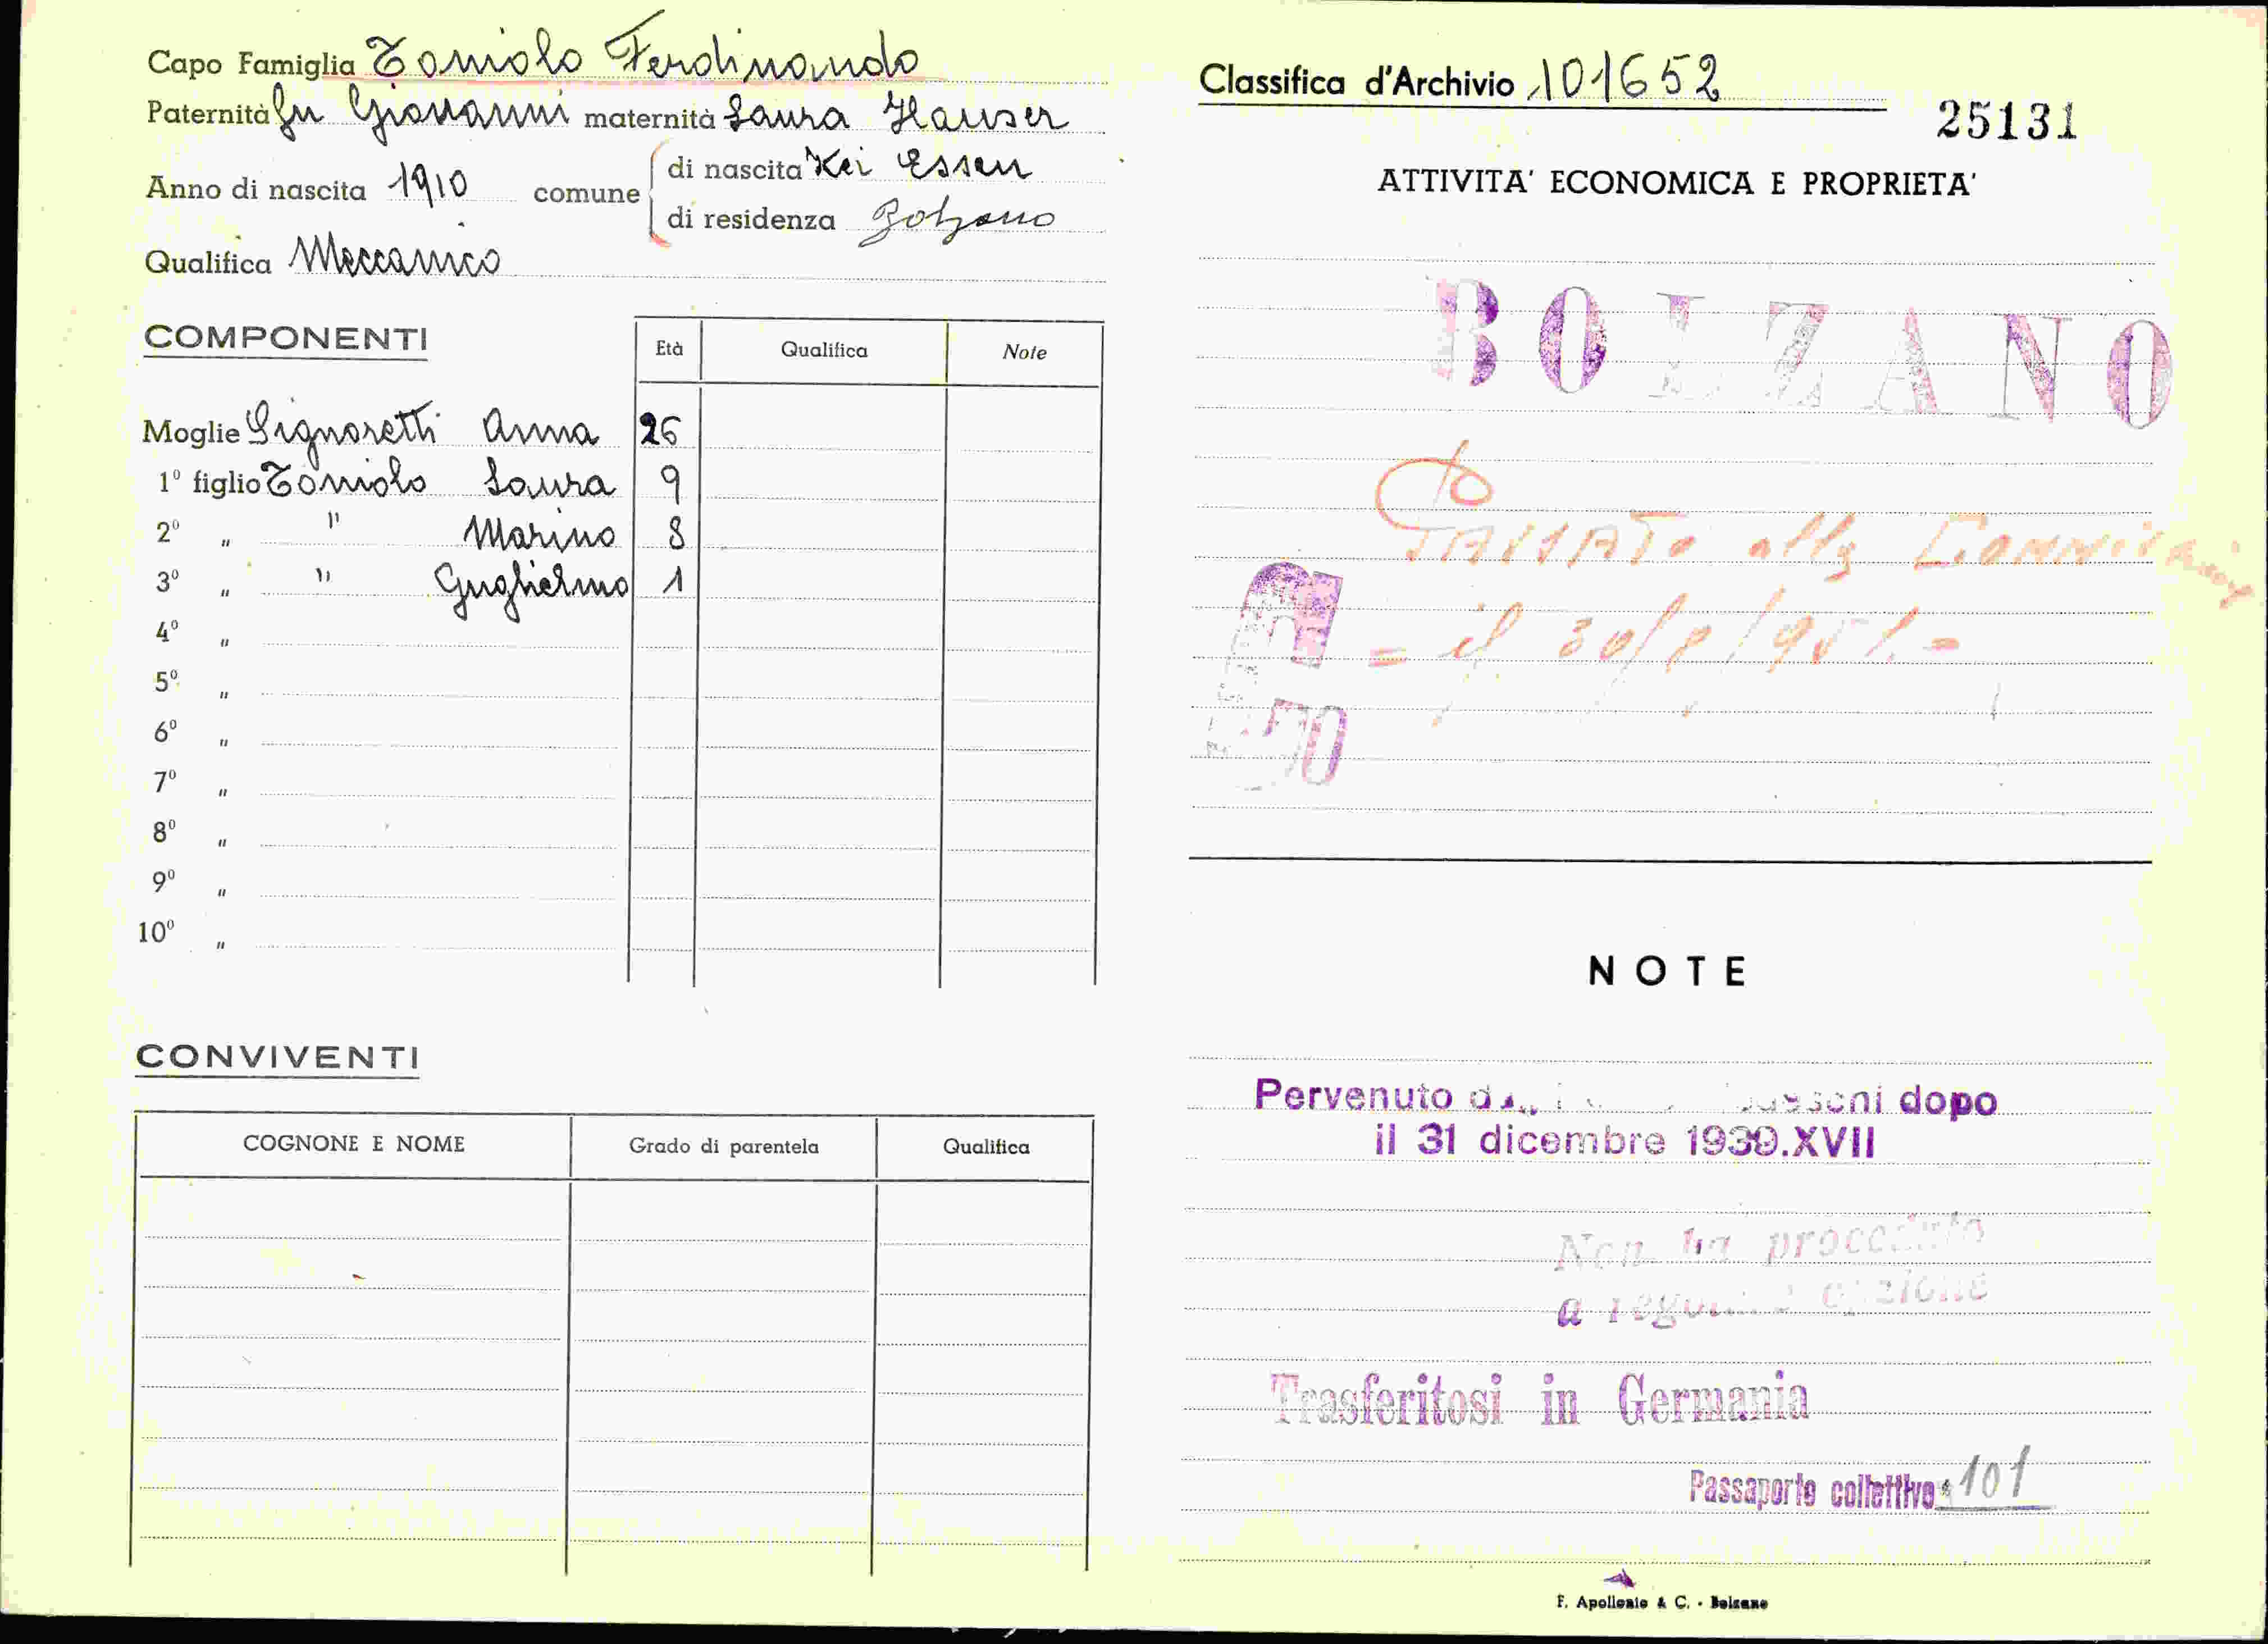 Capo Famiglia Toniolo Ferdinando
Paternità fu Giovanni maternità Laura Hauser
Anno di nascita 1910 comune
di nascita Kei Essen
di residenza Bolzano
Qualifica Meccanico
COMPONENTI
Età Qualifica Note
Moglie Signoretti Anna 26
1º figlio Toniolo Laura 9
2º " " Marino 8
3º " " Guglielmo 1
4º "
5º "
6º "
7º "
8º "
9º "
10º "
CONVIVENTI
COGNONE E NOME Grado di parentela Qualifica
Classifica d'Archivio 101652
25131
ATTIVITA' ECONOMICA E PROPRIETA'
BOLZANO
alla
= il
NOTE
Pervenuto dopo
il 31 dicembre 1939.XVII
Non ha proceduto
a opzione
Trasferitosi in Germania
Passaporto collettivo 101
F. Apollonio & C. - Bolzano